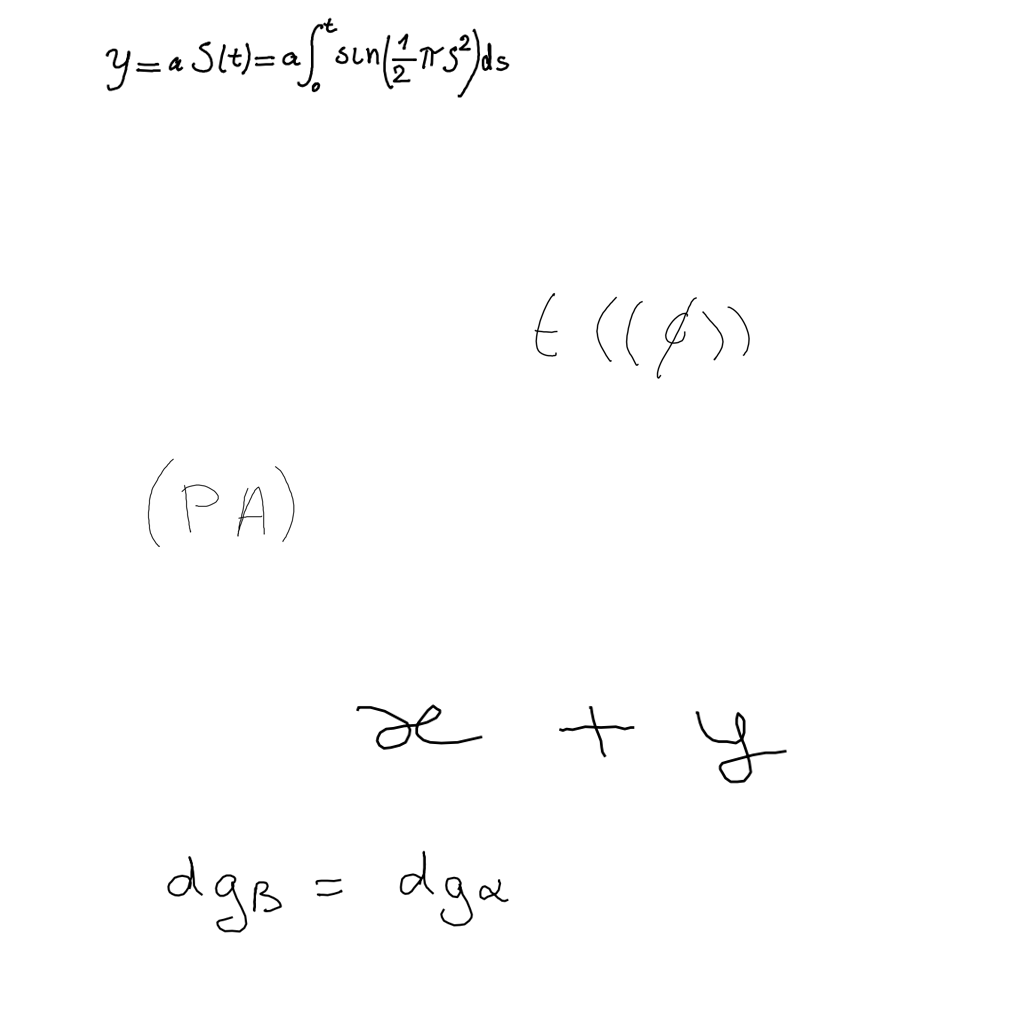 y = a S(t) = a ∫₀ᵗ sin(½ π s²) ds
t ((φ))
(P A)
x + y
dg_β = dg_α